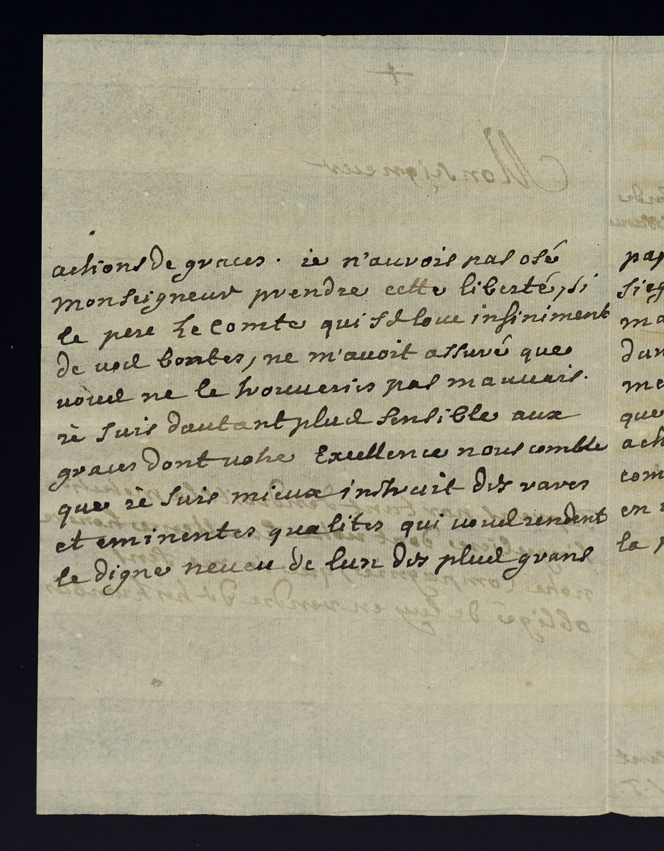 actions de graces. ie n'aurois pas osé
Monseigneur prendre cette liberté, si
le pere Le Comte qui se loue infiniment
de vos bontes, ne m'avoit assuré que
vous ne le trouveries pas mauvais.
ie suis dautant plus sensible aux
graces dont votre Excellence nous comble
que ie suis mieux instruit des rares
et eminentes qualites qui vous rendent
le digne neveu de lun des plus grans
pap
sieg
ma
dan
me
que
act
com
en
la
Monseigneur